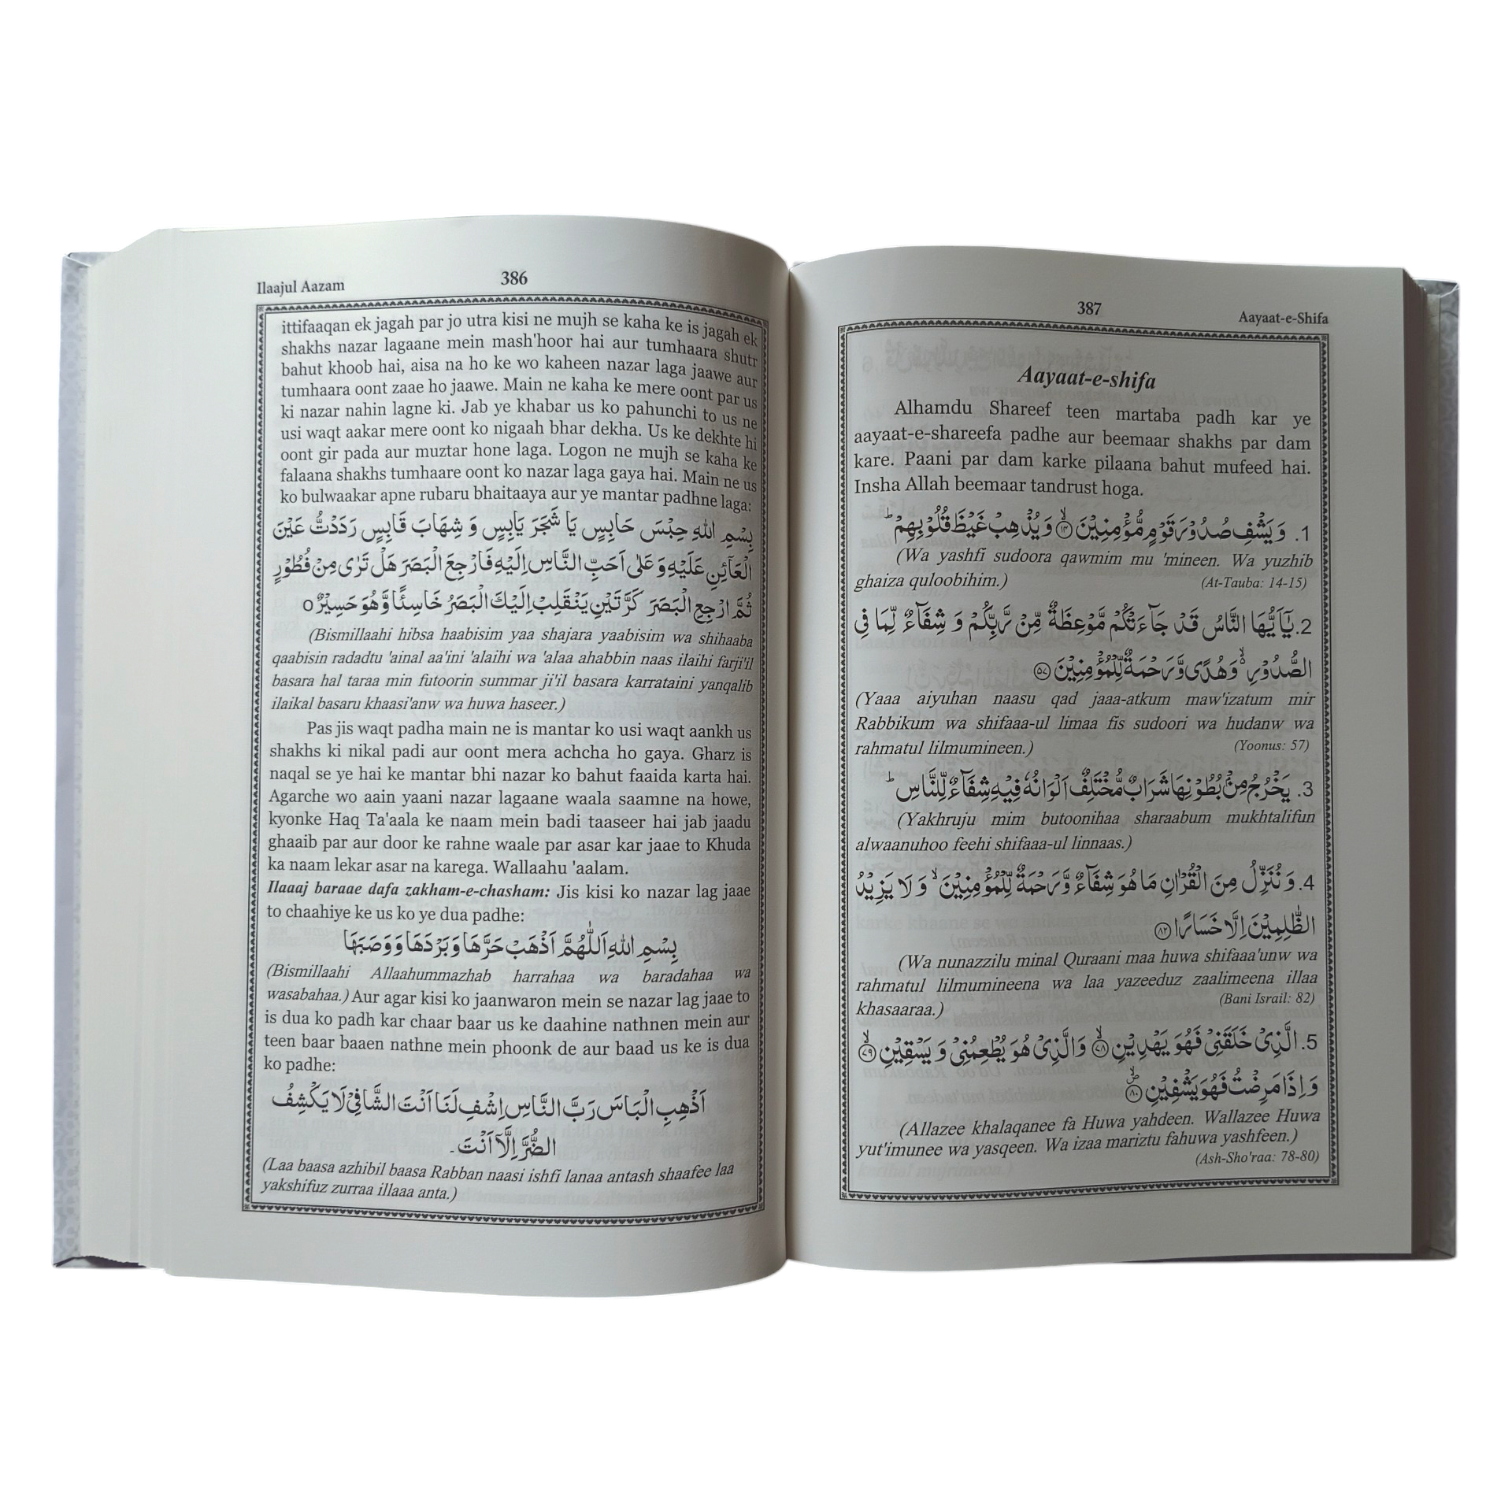 Ilaajul Aazam 386
ittifaaqan ek jagah par jo utra kisi ne mujh se kaha ke is jagah ek
shakhs nazar lagaane mein mash'hoor hai aur tumhaara shutr
bahut khoob hai, aisa na ho ke wo kaheen nazar laga jaawe aur
tumhaara oont zaae ho jaawe. Main ne kaha ke mere oont par us
ki nazar nahin lagne ki. Jab ye khabar us ko pahunchi to us ne
usi waqt aakar mere oont ko nigaah bhar dekha. Us ke dekhte hi
oont gir pada aur muztar hone laga. Logon ne mujh se kaha ke
falaana shakhs tumhaare oont ko nazar laga gaya hai. Main ne us
ko bulwaakar apne rubaru bhaitaaya aur ye mantar padhne laga:
بِسْمِ اللهِ حِبْسَ حَابِسٍ يَا شَجَرَ يَابِسٍ وَ شِهَابَ قَابِسٍ رَدَدْتُّ عَيْنَ
الْعَائِنِ عَلَيْهِ وَعَلٰى اَحَبِّ النَّاسِ اِلَيْهِ فَارْجِعِ الْبَصَرَ هَلْ تَرٰى مِنْ فُطُوْرٍ
ثُمَّ ارْجِعِ الْبَصَرَ كَرَّتَيْنِ يَنْقَلِبْ اِلَيْكَ الْبَصَرُ خَاسِئًا وَّهُوَ حَسِيْرٌ ○
(Bismillaahi hibsa haabisim yaa shajara yaabisim wa shihaaba
qaabisin radadtu 'ainal aa'ini 'alaihi wa 'alaa ahabbin naas ilaihi farji'il
basara hal taraa min futoorin summar ji'il basara karrataini yanqalib
ilaikal basaru khaasi'anw wa huwa haseer.)
Pas jis waqt padha main ne is mantar ko usi waqt aankh us
shakhs ki nikal padi aur oont mera achcha ho gaya. Gharz is
naqal se ye hai ke mantar bhi nazar ko bahut faaida karta hai.
Agarche wo aain yaani nazar lagaane waala saamne na howe,
kyonke Haq Ta'aala ke naam mein badi taaseer hai jab jaadu
ghaaib par aur door ke rahne waale par asar kar jaae to Khuda
ka naam lekar asar na karega. Wallaahu 'aalam.
Ilaaaj baraae dafa zakham-e-chasham: Jis kisi ko nazar lag jaae
to chaahiye ke us ko ye dua padhe:
بِسْمِ اللهِ اَللّٰهُمَّ اَذْهَبْ حَرَّهَا وَبَرْدَهَا وَوَصَبَهَا
(Bismillaahi Allaahummazhab harrahaa wa baradahaa wa
wasabahaa.) Aur agar kisi ko jaanwaron mein se nazar lag jaae to
is dua ko padh kar chaar baar us ke daahine nathnen mein aur
teen baar baaen nathne mein phoonk de aur baad us ke is dua
ko padhe:
اَذْهِبِ الْبَاسَ رَبَّ النَّاسِ اِشْفِ لَنَا اَنْتَ الشَّافِيْ لَا يَكْشِفُ
الضُّرَّ اِلَّآ اَنْتَ۔
(Laa baasa azhibil baasa Rabban naasi ishfi lanaa antash shaafee laa
yakshifuz zurraa illaaa anta.)
387 Aayaat-e-Shifa
Aayaat-e-shifa
Alhamdu Shareef teen martaba padh kar ye
aayaat-e-shareefa padhe aur beemaar shakhs par dam
kare. Paani par dam karke pilaana bahut mufeed hai.
Insha Allah beemaar tandrust hoga.
1. وَيَشْفِ صُدُوْرَ قَوْمٍ مُّؤْمِنِيْنَ ﴿١٤﴾ وَيُذْهِبْ غَيْظَ قُلُوْبِهِمْ ؕ
(Wa yashfi sudoora qawmim mu 'mineen. Wa yuzhib
ghaiza quloobihim.) (At-Tauba: 14-15)
2. يٰۤاَيُّهَا النَّاسُ قَدْ جَآءَتْكُمْ مَّوْعِظَةٌ مِّنْ رَّبِّكُمْ وَ شِفَآءٌ لِّمَا فِى
الصُّدُوْرِ ۙ وَهُدًى وَّرَحْمَةٌ لِّلْمُؤْمِنِيْنَ ﴿٥٧﴾
(Yaaa aiyuhan naasu qad jaaa-atkum maw'izatum mir
Rabbikum wa shifaaa-ul limaa fis sudoori wa hudanw wa
rahmatul lilmumineen.) (Yoonus: 57)
3. يَخْرُجُ مِنْۢ بُطُوْنِهَا شَرَابٌ مُّخْتَلِفٌ اَلْوَانُهٗ فِيْهِ شِفَآءٌ لِّلنَّاسِ ؕ
(Yakhruju mim butoonihaa sharaabum mukhtalifun
alwaanuhoo feehi shifaaa-ul linnaas.)
4. وَنُنَزِّلُ مِنَ الْقُرْاٰنِ مَا هُوَ شِفَآءٌ وَّرَحْمَةٌ لِّلْمُؤْمِنِيْنَ ۙ وَلَا يَزِيْدُ
الظّٰلِمِيْنَ اِلَّا خَسَارًا ﴿٨٢﴾
(Wa nunazzilu minal Quraani maa huwa shifaaa'unw wa
rahmatul lilmumineena wa laa yazeeduz zaalimeena illaa
khasaaraa.) (Bani Israil: 82)
5. الَّذِىْ خَلَقَنِىْ فَهُوَ يَهْدِيْنِ ﴿٧٨﴾ وَالَّذِىْ هُوَ يُطْعِمُنِىْ وَ يَسْقِيْنِ ﴿٧٩﴾
وَاِذَا مَرِضْتُ فَهُوَ يَشْفِيْنِ ﴿٨٠﴾
(Allazee khalaqanee fa Huwa yahdeen. Wallazee Huwa
yut'imunee wa yasqeen. Wa izaa mariztu fahuwa yashfeen.)
(Ash-Sho'raa: 78-80)